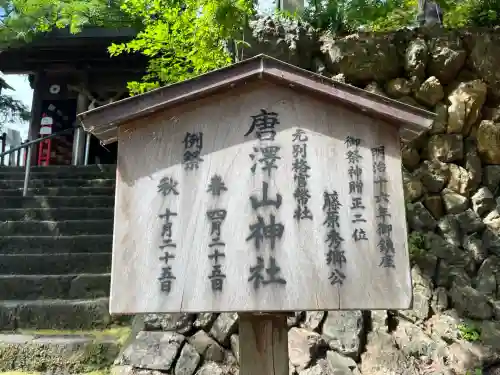 明治十六年御鎮座
御祭神贈正二位
藤原秀郷公
元別格官幣社
唐澤山神社
例祭
春 四月二十五日
秋 十月二十五日